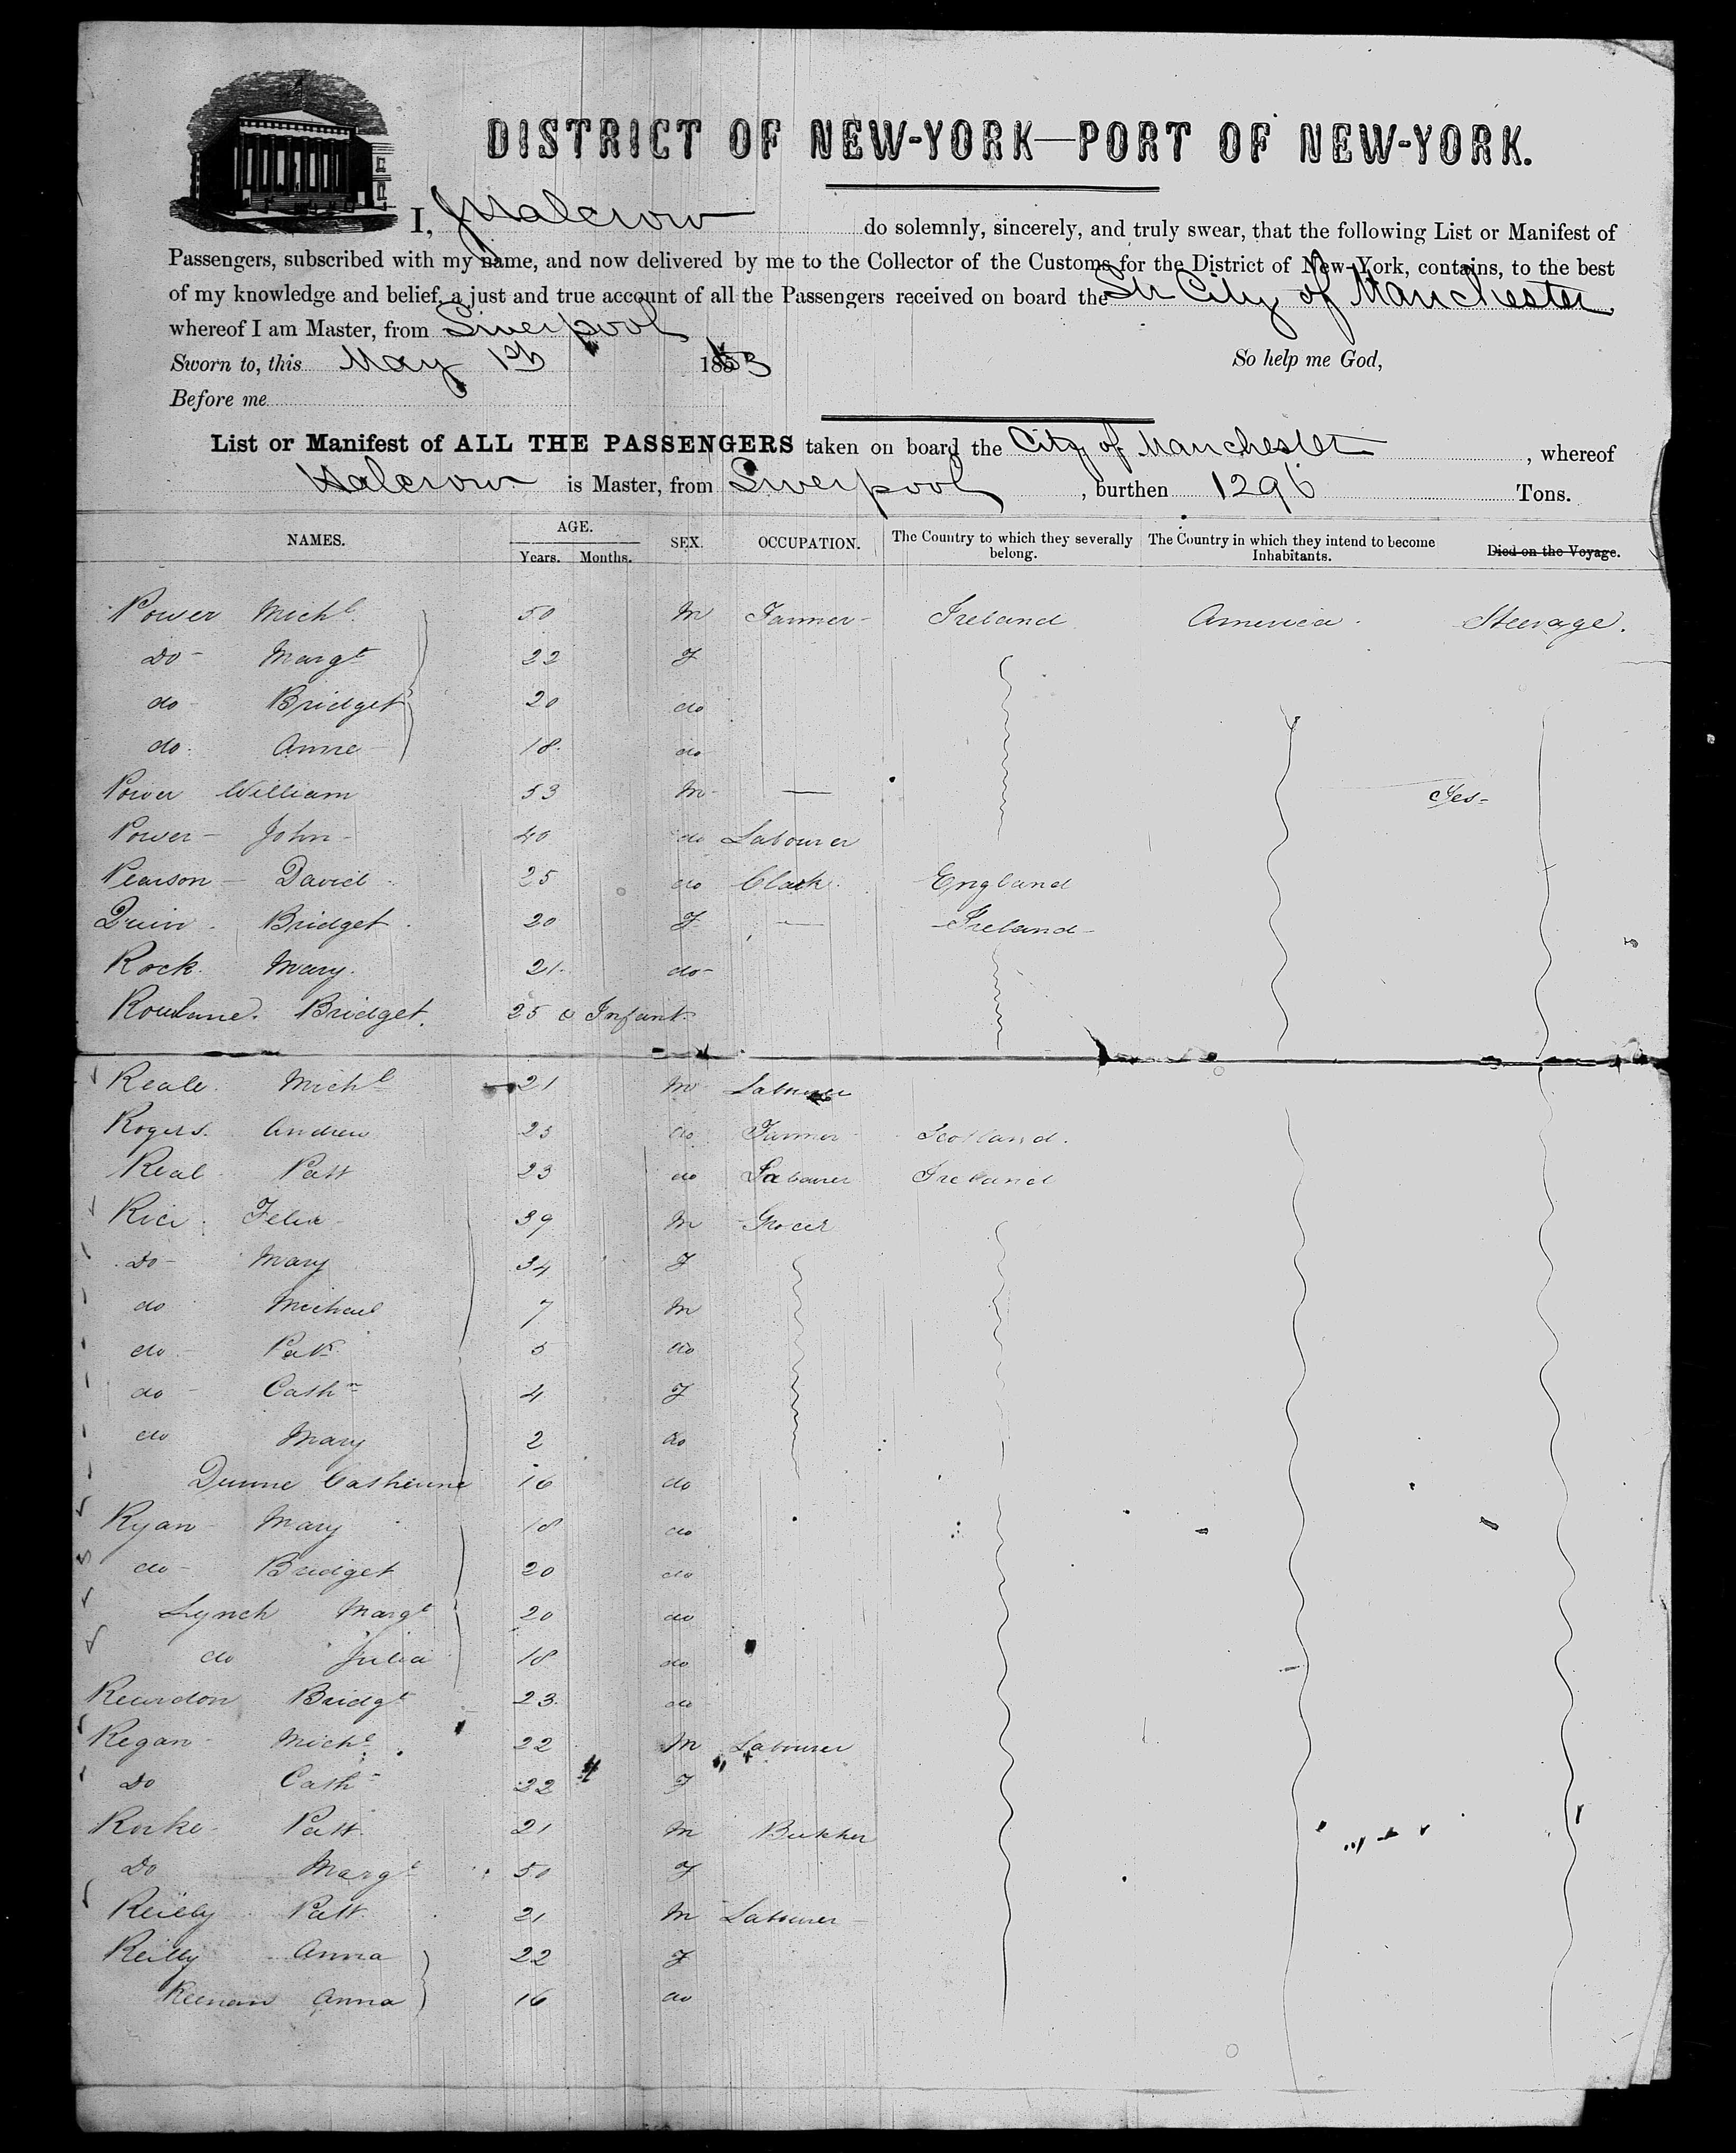 DISTRICT OF NEW-YORK—PORT OF NEW-YORK.
I, Halcrow do solemnly, sincerely, and truly swear, that the following List or Manifest of
Passengers, subscribed with my name, and now delivered by me to the Collector of the Customs for the District of New-York, contains, to the best
of my knowledge and belief, a just and true account of all the Passengers received on board the Str City of Manchester,
whereof I am Master, from Liverpool
Sworn to, this May 1st 1863 So help me God,
Before me
List or Manifest of ALL THE PASSENGERS taken on board the City of Manchester, whereof
Halcrow is Master, from Liverpool, burthen 1296 Tons.
NAMES. AGE. Years. Months. SEX. OCCUPATION. The Country to which they severally belong. The Country in which they intend to become Inhabitants. Died on the Voyage.
Power Michl 50 M Farmer Ireland America Steerage.
Do Margt 22 F
do Bridget 20 do
do Anne 18 do
Power William 53 M — Yes
Power John 40 do Labourer
Pearson David 25 do Clark England
Quin Bridget 20 F — Ireland
Rock Mary 21 do
Bridget 25 & Infant
Reale Michl 21 M Labourer
Rogers Andrew 23 do Farmer Scotland.
Real Patt 23 do Labourer Ireland
Rice Felix 39 M Grocer
Do Mary 34 F
do Michael 7 M
do Patk 5 do
do Cathn 4 F
do Mary 2 do
Dunne Catherine 16 do
Ryan Mary 18 do
do Bridget 20 do
Lynch Margt 20 do
do Julia 18 do
Reardon Bridgt 23 do
Regan Michl 22 M Labourer
Do Cath 22 F
Rorke Patt 21 M Butcher
Do Margt 50 F
Reilly Patt 21 M Labourer
Reilly Anna 22 F
Keenan Anna 16 do